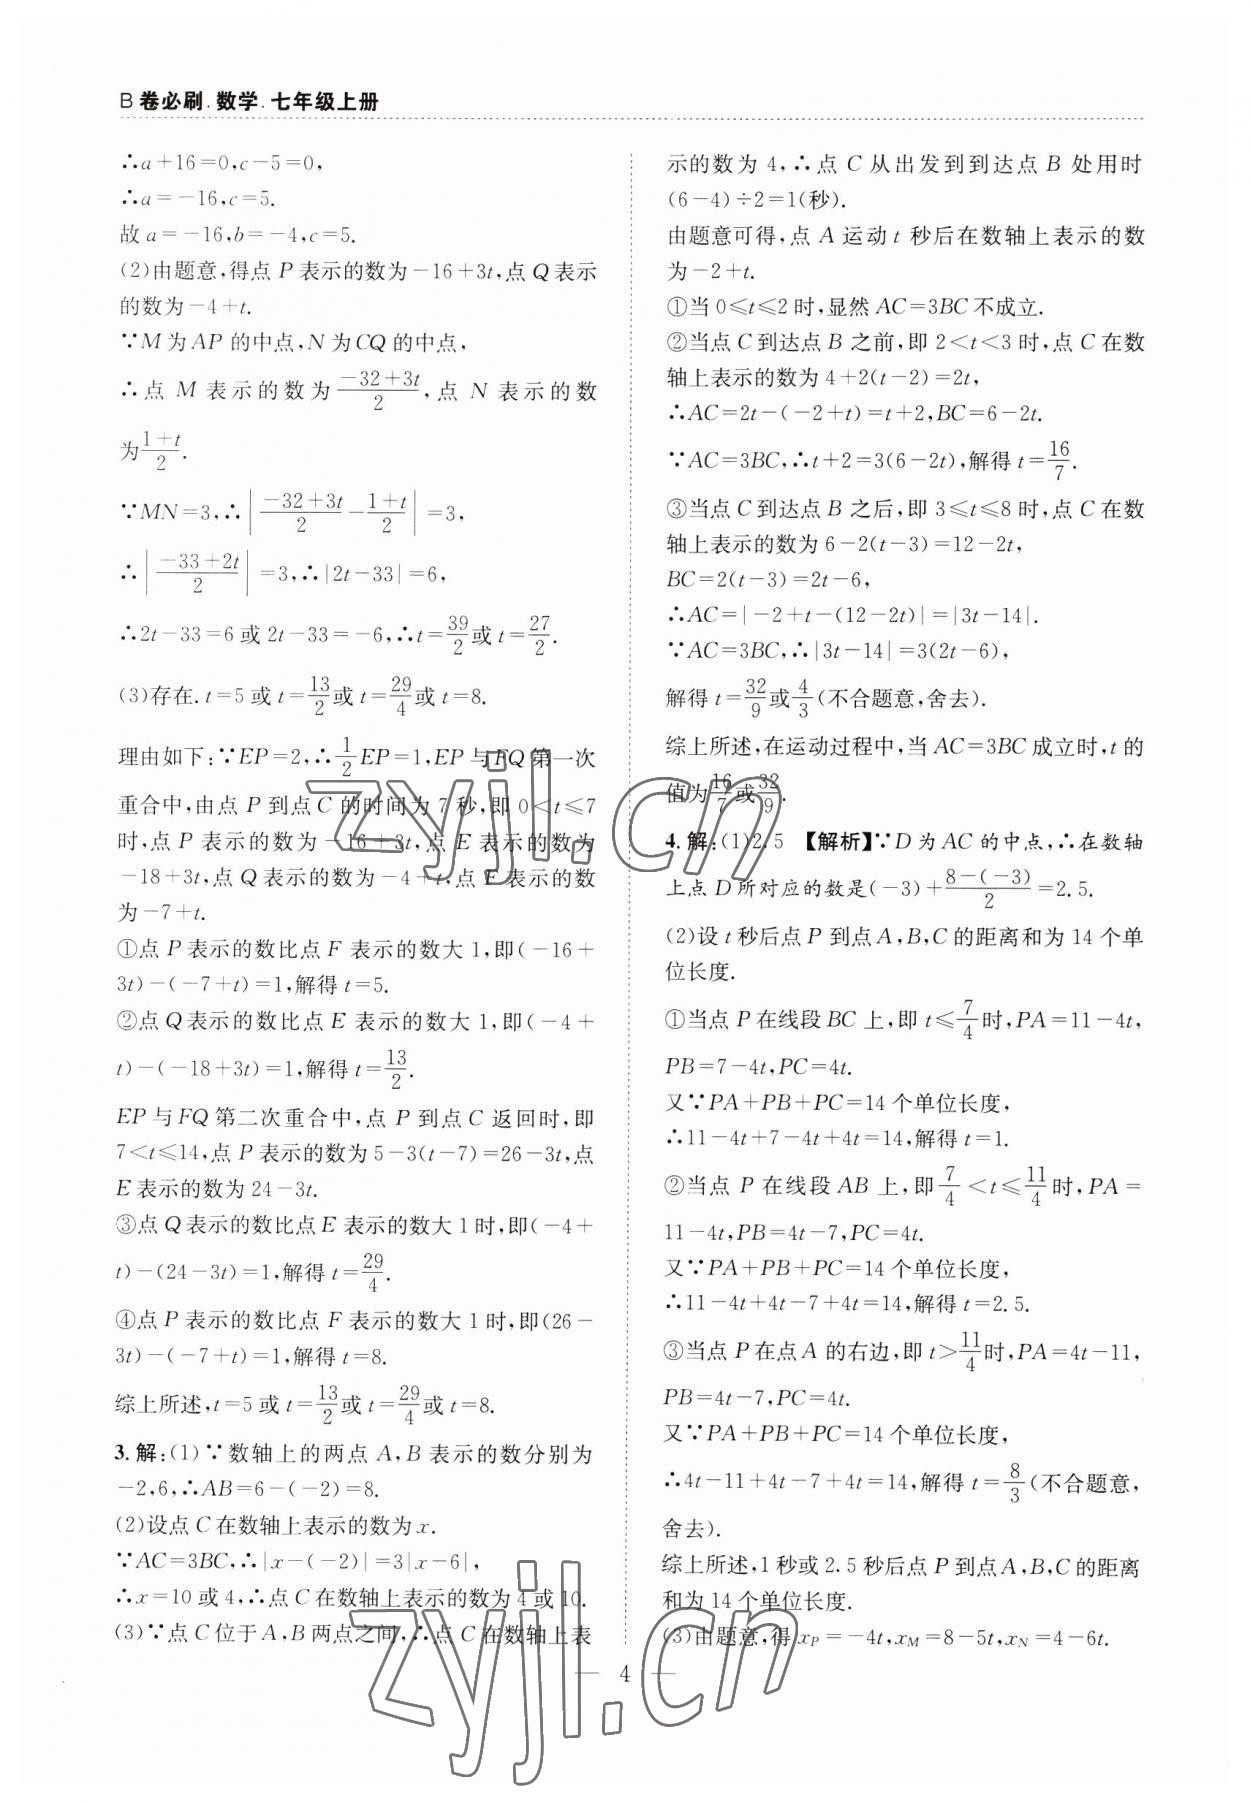 B 卷必刷.数学.七年级上册
∴a+16=0,c-5=0,
∴a=-16,c=5.
故a=-16,b=-4,c=5.
(2)由题意,得点 P 表示的数为-16+3t,点 Q 表示
的数为-4+t.
∵M 为 AP 的中点,N 为 CQ 的中点,
∴点 M 表示的数为(-32+3t)/2,点 N 表示的数
为(1+t)/2.
∵MN=3,∴|(-32+3t)/2-(1+t)/2|=3,
∴|(-33+2t)/2|=3,∴|2t-33|=6,
∴2t-33=6 或 2t-33=-6,∴t=39/2或 t=27/2.
(3)存在. t=5 或 t=13/2或 t=29/4或 t=8.
理由如下:∵EP=2,∴1/2EP=1,EP 与 FQ 第一次
重合中,由点 P 到点 C 的时间为 7 秒,即 0<t≤7
时,点 P 表示的数为-16+3t,点 E 表示的数为
-18+3t,点 Q 表示的数为-4+t,点 F 表示的数
为-7+t.
①点 P 表示的数比点 F 表示的数大 1,即(-16+
3t)-(-7+t)=1,解得 t=5.
②点 Q 表示的数比点 E 表示的数大 1,即(-4+
t)-(-18+3t)=1,解得 t=13/2.
EP 与 FQ 第二次重合中,点 P 到点 C 返回时,即
7<t≤14,点 P 表示的数为 5-3(t-7)=26-3t,点
E 表示的数为 24-3t.
③点 Q 表示的数比点 E 表示的数大 1 时,即(-4+
t)-(24-3t)=1,解得 t=29/4.
④点 P 表示的数比点 F 表示的数大 1 时,即(26-
3t)-(-7+t)=1,解得 t=8.
综上所述,t=5 或 t=13/2或 t=29/4或 t=8.
3.解:(1)∵数轴上的两点 A,B 表示的数分别为
-2,6,∴AB=6-(-2)=8.
(2)设点 C 在数轴上表示的数为 x.
∵AC=3BC,∴|x-(-2)|=3|x-6|,
∴x=10 或 4,∴点 C 在数轴上表示的数为 4 或 10.
(3)∵点 C 位于 A,B 两点之间,∴点 C 在数轴上表
示的数为 4,∴点 C 从出发到到达点 B 处用时
(6-4)÷2=1(秒).
由题意可得,点 A 运动 t 秒后在数轴上表示的数
为-2+t.
①当 0≤t≤2 时,显然 AC=3BC 不成立.
②当点 C 到达点 B 之前,即 2<t<3 时,点 C 在数
轴上表示的数为 4+2(t-2)=2t,
∴AC=2t-(-2+t)=t+2,BC=6-2t.
∵AC=3BC,∴t+2=3(6-2t),解得 t=16/7.
③当点 C 到达点 B 之后,即 3≤t≤8 时,点 C 在数
轴上表示的数为 6-2(t-3)=12-2t,
BC=2(t-3)=2t-6,
∴AC=|-2+t-(12-2t)|=|3t-14|.
∵AC=3BC,∴|3t-14|=3(2t-6),
解得 t=32/9或4/3(不合题意,舍去).
综上所述,在运动过程中,当 AC=3BC 成立时,t 的
值为16/7或32/9.
4.解:(1)2.5 【解析】∵D 为 AC 的中点,∴在数轴
上点 D 所对应的数是(-3)+(8-(-3))/2=2.5.
(2)设 t 秒后点 P 到点 A,B,C 的距离和为 14 个单
位长度.
①当点 P 在线段 BC 上,即 t≤7/4时,PA=11-4t,
PB=7-4t,PC=4t.
又∵PA+PB+PC=14 个单位长度,
∴11-4t+7-4t+4t=14,解得 t=1.
②当点 P 在线段 AB 上,即7/4<t≤11/4时,PA=
11-4t,PB=4t-7,PC=4t.
又∵PA+PB+PC=14 个单位长度,
∴11-4t+4t-7+4t=14,解得 t=2.5.
③当点 P 在点 A 的右边,即 t>11/4时,PA=4t-11,
PB=4t-7,PC=4t.
又∵PA+PB+PC=14 个单位长度,
∴4t-11+4t-7+4t=14,解得 t=8/3(不合题意,
舍去).
综上所述,1 秒或 2.5 秒后点 P 到点 A,B,C 的距离
和为 14 个单位长度.
(3)由题意,得 xP=-4t,xM=8-5t,xN=4-6t.
— 4 —
zyjl.cn
zyjl.cn